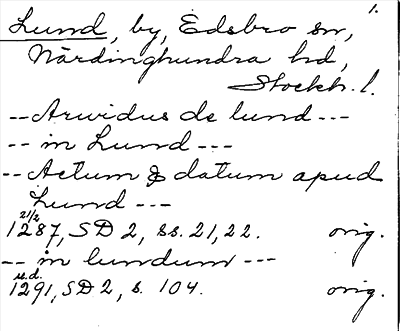 1.
Lund, by, Edsbro sn,
Närdinghundra hd,
Stockh. l.
-- Arvidus de lund ---
-- in Lund ---
-- Actum & datum apud
Lund ---
21/2
1287, SD 2, ss. 21, 22. orig.
-- in lundum ---
u.d.
1291, SD 2, s. 104. orig.